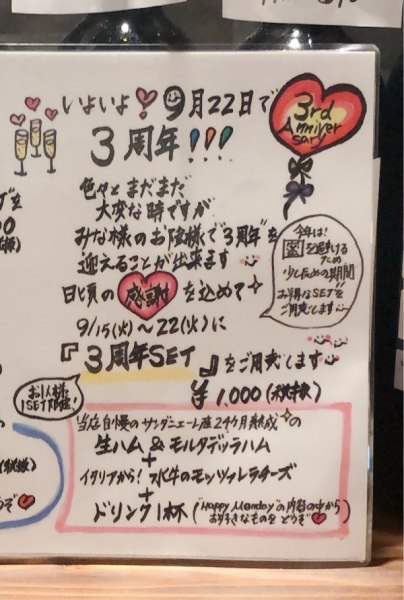 いよいよ! 9月22日で
3周年!!!
3rd
Anniver
sary
色々とまだまだ
大変な時ですが
みな様のお陰様で"3周年"を
迎えることが出来ます
日頃の感謝を込めて
9/15(火)～22(火)に
『3周年SET』をご用意します
¥1,000(税抜)
今年は!
密を避ける
ため
少し長めの期間
お得なSETを
ご用意します
お1人様
1SET限定!
当店自慢のサンダニエーレ産24ヶ月熟成の
生ハム & モルタデッラハム
+
イタリアから! 水牛のモッツァレラチーズ
+
ドリンク1杯("Happy Monday"の内容の中から
お好きなものをどうぞ)